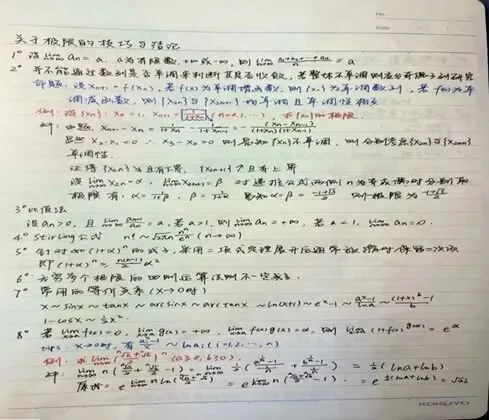 No.
Date
关于极限的技巧与结论
1° 设 lim an = a, a为有限数, +∞或-∞, 则 lim (a1+a2+…+an)/n = a
2° 并不能通过数列是否单调来判断其是否收敛, 若整体不单调则应分奇偶子列研究
命题: 设 Xn+1 = f(Xn), 若f(x)为单调增函数, 则{Xn}为单调数列, 若f(x)为单
调减函数, 则{X2n}与{X2n+1}均单调且单调性相反
例: 设 X1 = 1/(1+Xn) (n=0,1,…), 求{Xn}的极限
解: Xn+1 - Xn = 1/(1+Xn) - 1/(1+Xn-1) = -(Xn-Xn-1)/((1+Xn)(1+Xn-1))
X2-X1<0 ∴ X3-X2>0 则{Xn}不单调, 则分别考虑{X2n}与{X2n+1}
单调性
证得{X2n}↓且有下界, {X2n+1}↑且有上界
设 lim X2n = α, lim X2n+1 = β 对递推公式两侧n为奇或偶时分别取
极限有, α = 1/(1+β), β = 1/(1+α) α=β= (-1+√5)/2 则极限为 (-1+√5)/2
3° 比值法
设 an>0, 且 lim an+1/an = a, 若a>1, 则 lim an = +∞, 若a<1, lim an = 0.
4° Stirling公式 n! ~ √2πn n^n/e^n (n→∞)
5° 针对 (1+α)^n 的式子, 采用二项式定理展开后通常放缩时保留二次项
即 (1+α)^n ≥ n(n-1)/2 α²
6° 无穷多个极限的四则运算法则不一定成立.
7° 常用的等价关系 (x→0时)
x ~ sinx ~ tanx ~ arcsinx ~ arctanx ~ ln(x+1) ~ e^x-1 ~ (a^x-1)/lna ~ ((1+x)^b-1)/b
1-cosx ~ ½x².
8° 若 lim f(x) = 0, lim g(x) = +∞, lim f(x)g(x) = α, 则 lim (1+f(x))^g(x) = e^α
x→0时, 有 (ai^x-1)/x ~ ln ai (i=1,2,…,n)
例: 求 lim ((ⁿ√a+ⁿ√b)/2)^n (a≥0, b≥0).
解: lim n((ⁿ√a+ⁿ√b)/2 - 1) = lim ½((a^(1/n)-1)/(1/n) + (b^(1/n)-1)/(1/n)) = ½(lna+lnb)
原式 = e^(lim n ln((ⁿ√a+ⁿ√b)/2)) = e^(lim n((ⁿ√a+ⁿ√b)/2-1)) = e^(½(lna+lnb)) = √ab
KOKUYO